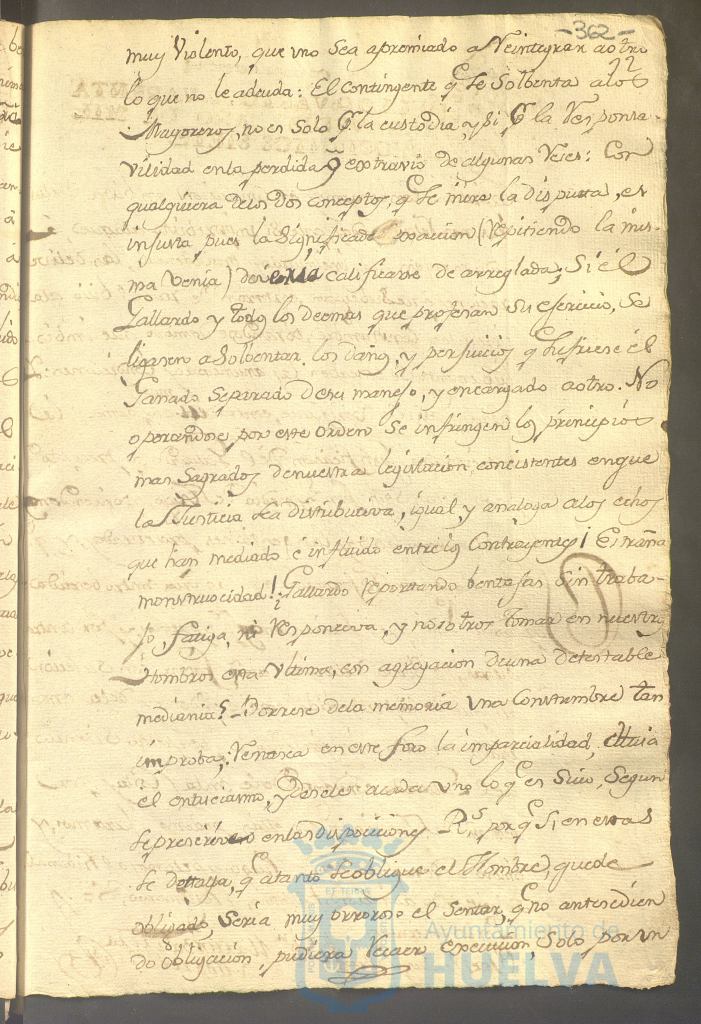 -362-
22
muy violento, que uno sea apremiado a Reintegrar ao tro
lo que no le adeuda: El contingente q.e se Solbenta a los
Mayoreros, no es Solo p.r la custodia, y si p.r la Responsa-
vilidad en la perdida, o extravio de algunas Reses: Con
qualquiera de los dos conceptos, q.e se mire la disputa, es
injusta, pues la Significada posicion (repitiendo la mis-
ma venia) deve calificarse de arreglada, Si él
Gallardo y todos los demas que profesan su exercicio, Se
ligasen a Solbentar los daños, y perjuicios q.e sufriese él
Ganado Separado de su manejo, y encargado a otro. No
operandose por este orden Se infringen los principios
mas Sagrados de nuestra legislacion, concistentes en que
la Justicia Sea distributiva, igual y analoga a los echos
que han mediado e influido entre los Contrayentes ¡Estraña
monstruocidad! ¿Gallardo Reportando bentajas sin traba-
jo fatiga, ni Responciva, y nosotros tomar en nuestros
Hombros esta ultima, con agregacion de una detestable
mediania? Borrese de la memoria una Constumbre tan
improba; Renasca en este foro la imparcialidad,
el entuciasmo, y Desele a cada uno lo q.e es Suio, Segun
Se prescriven en las Disposiciones R.s porq.e Si en estas
Se detalla, q.e a tanto Se oblique el Hombre, quede
obligado, Seria muy orroroso el Sentar, q.e no antecedien
do obligacion, pudiera Recaer execucion, Solo por un
Ayuntamiento de
HUELVA